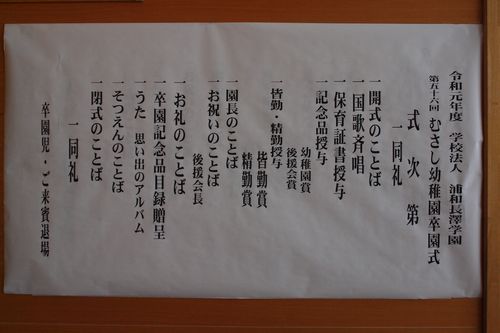 令和元年度 学校法人 浦和長澤学園
第五十六回 むさし幼稚園卒園式
式次第
一同礼
一開式のことば
一国歌斉唱
一保育証書授与
一記念品授与
幼稚園賞
後援会賞
一皆勤・精勤授与
皆勤賞
精勤賞
一園長のことば
一お祝いのことば
後援会長
一お礼のことば
一卒園記念品目録贈呈
一うた 思い出のアルバム
一そつえんのことば
一閉式のことば
一同礼
卒園児・ご来賓退場